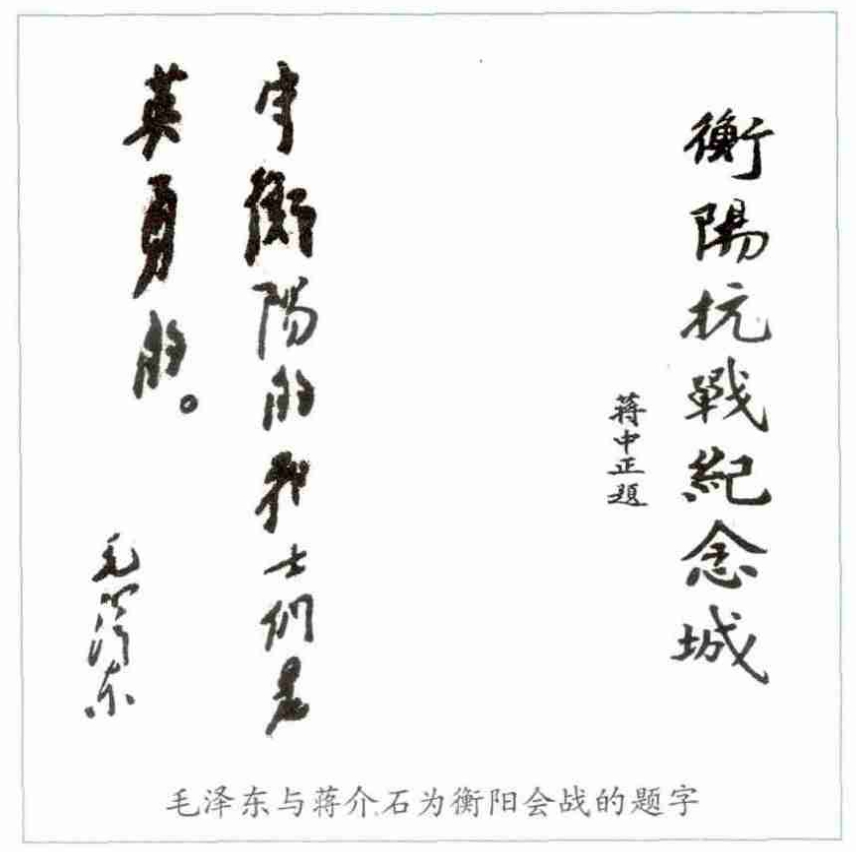 衡陽抗戰紀念城
蔣中正題
守衡陽的战士们是
英勇的。
毛泽东
毛泽东与蒋介石为衡阳会战的题字